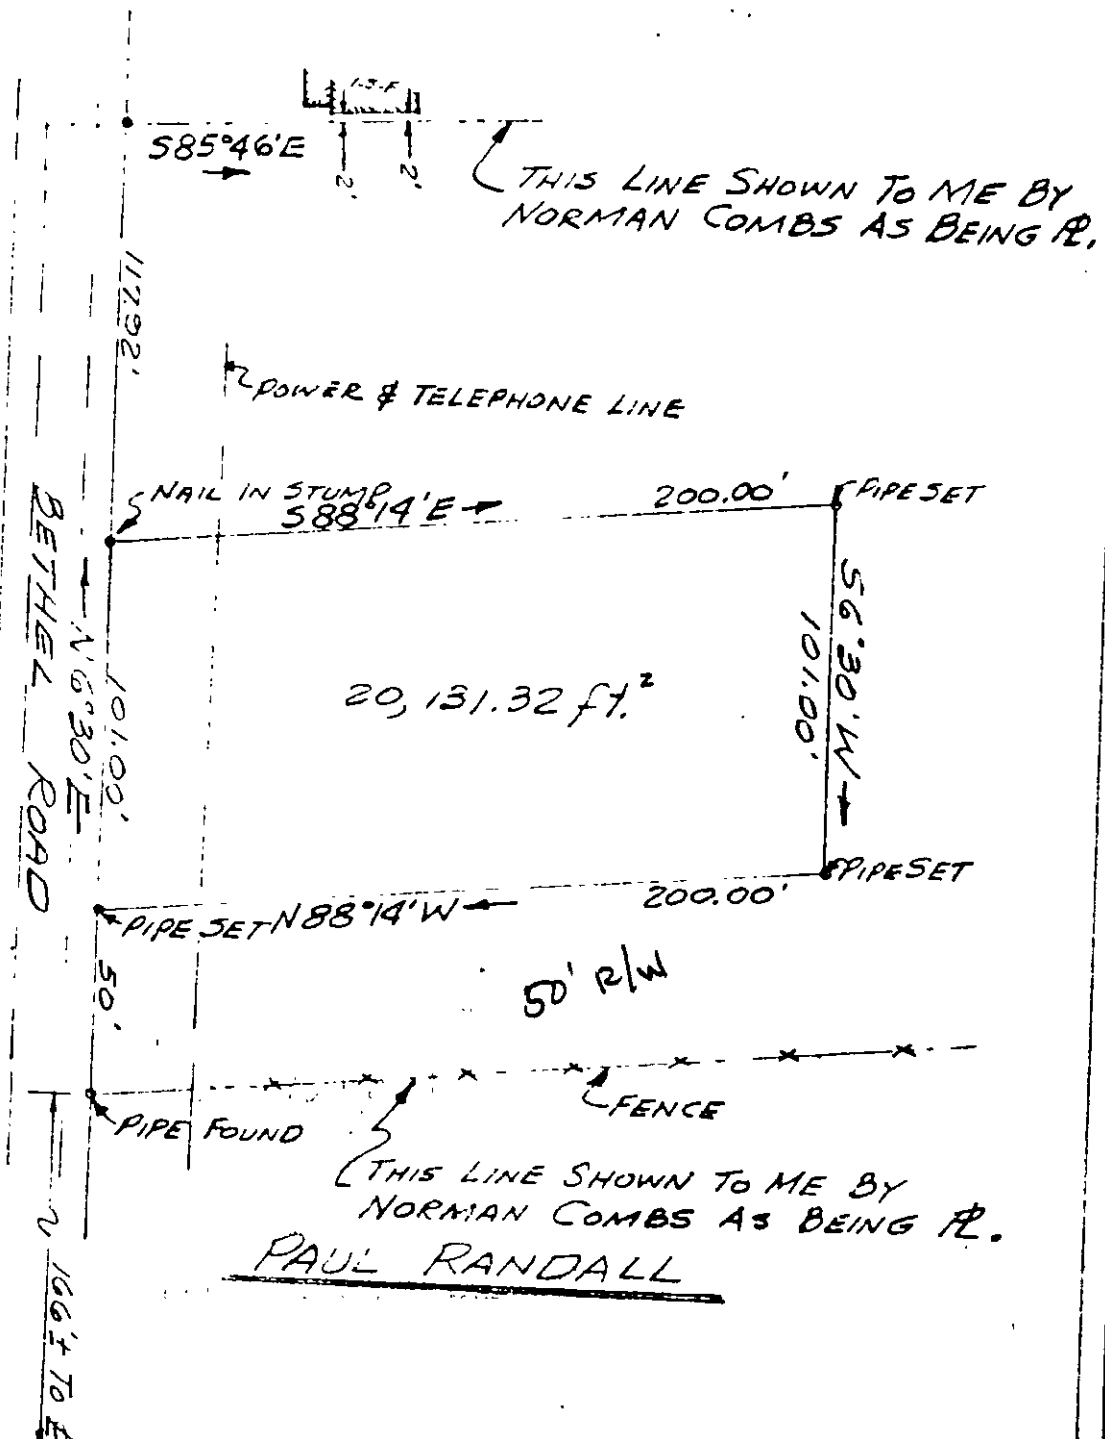 1-S-F
S85°46'E
2'
2'
THIS LINE SHOWN TO ME BY
NORMAN COMBS AS BEING PL.
117.92'
POWER & TELEPHONE LINE
NAIL IN STUMP
S88°14'E
200.00'
PIPE SET
BETHEL ROAD
N6°30'E
101.00'
20,131.32 ft.²
S6°30'W
101.00'
PIPE SET
N88°14'W
200.00'
PIPE SET
50'
50' R/W
FENCE
PIPE FOUND
THIS LINE SHOWN TO ME BY
NORMAN COMBS AS BEING PL.
PAUL RANDALL
166'± TO